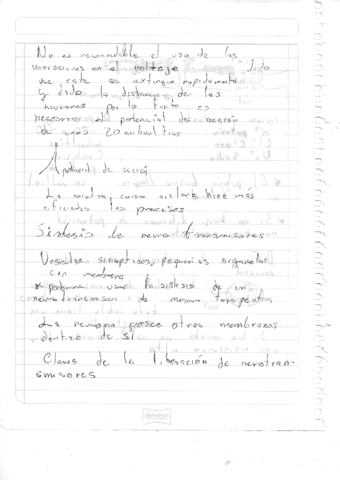 No es recomendable el uso de las
variaciones en el voltaje dado
que este se extingue rapidamente
y dada la distancia de las
neuronas por lo tanto es
necesario el potencial de acción
de unos 20 milivoltios
Apotencial de acción
La mielina, como aislante hace más
eficientes los procesos
Síntesis de neurotransmisores
Vesículas sinápticas, pequeños organelos
con membrana
podemos usar la síntesis de un
neurotransmisor de manera terapeutica
La neurona posee otras membranas
dentro de sí
Claves de la liberación de neurotran-
smisores
Scribe